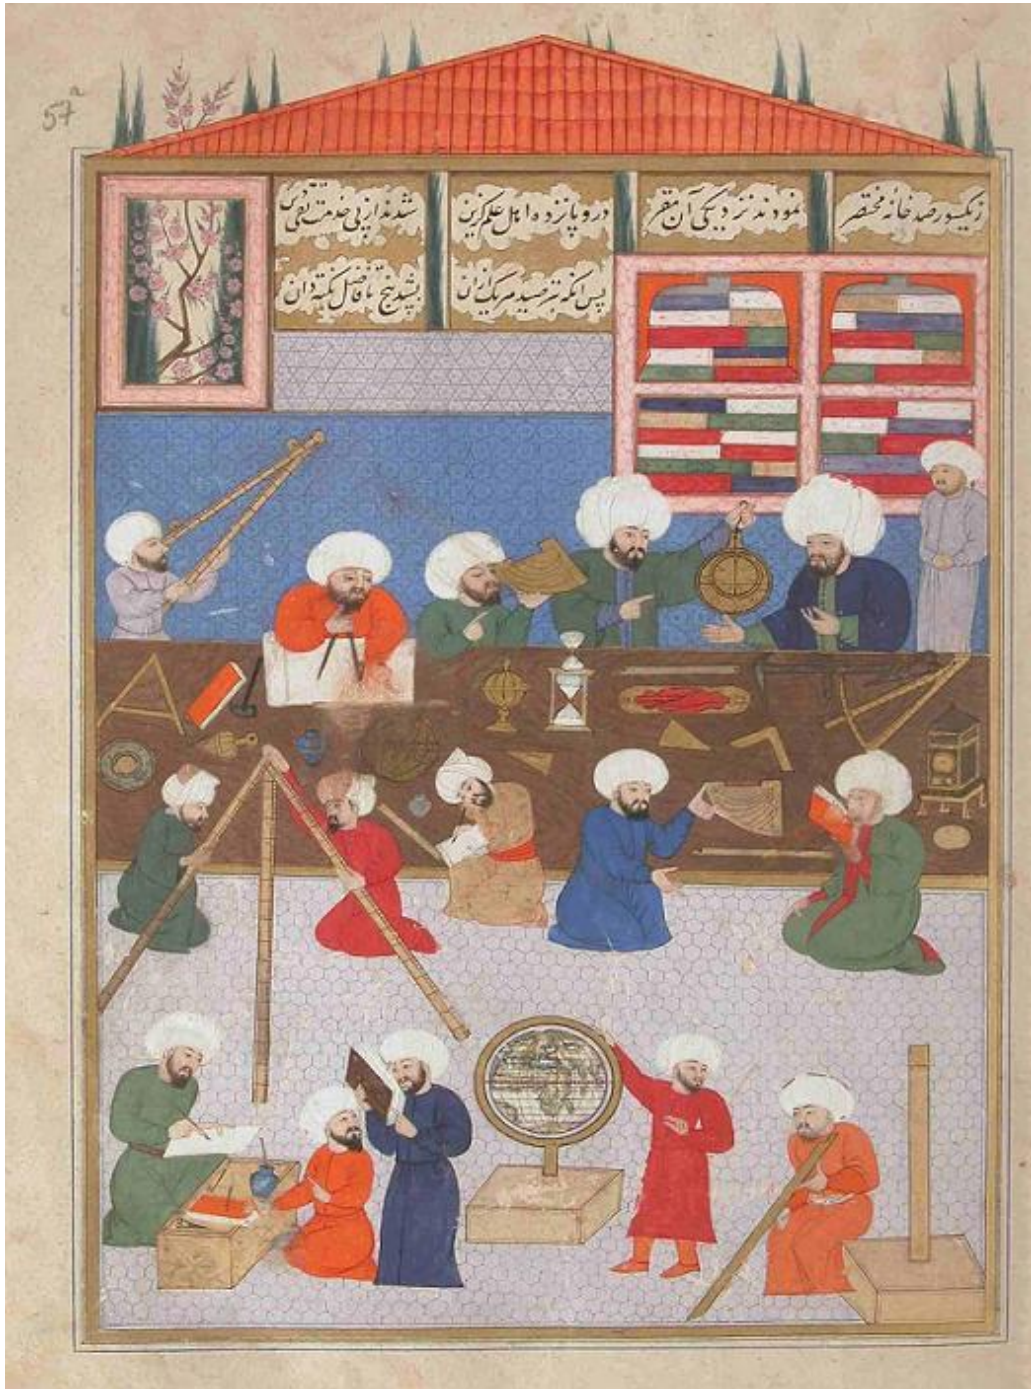 57a
زیکسو رصد خانهٔ مختصر نمودند نزدیکی آن مقر
درو پانزده اهل علم گزین شدند از پی خدمت تقی دین
پس انکه بترصید هر یک ازان بشد پنج تا فاضل نکته دان